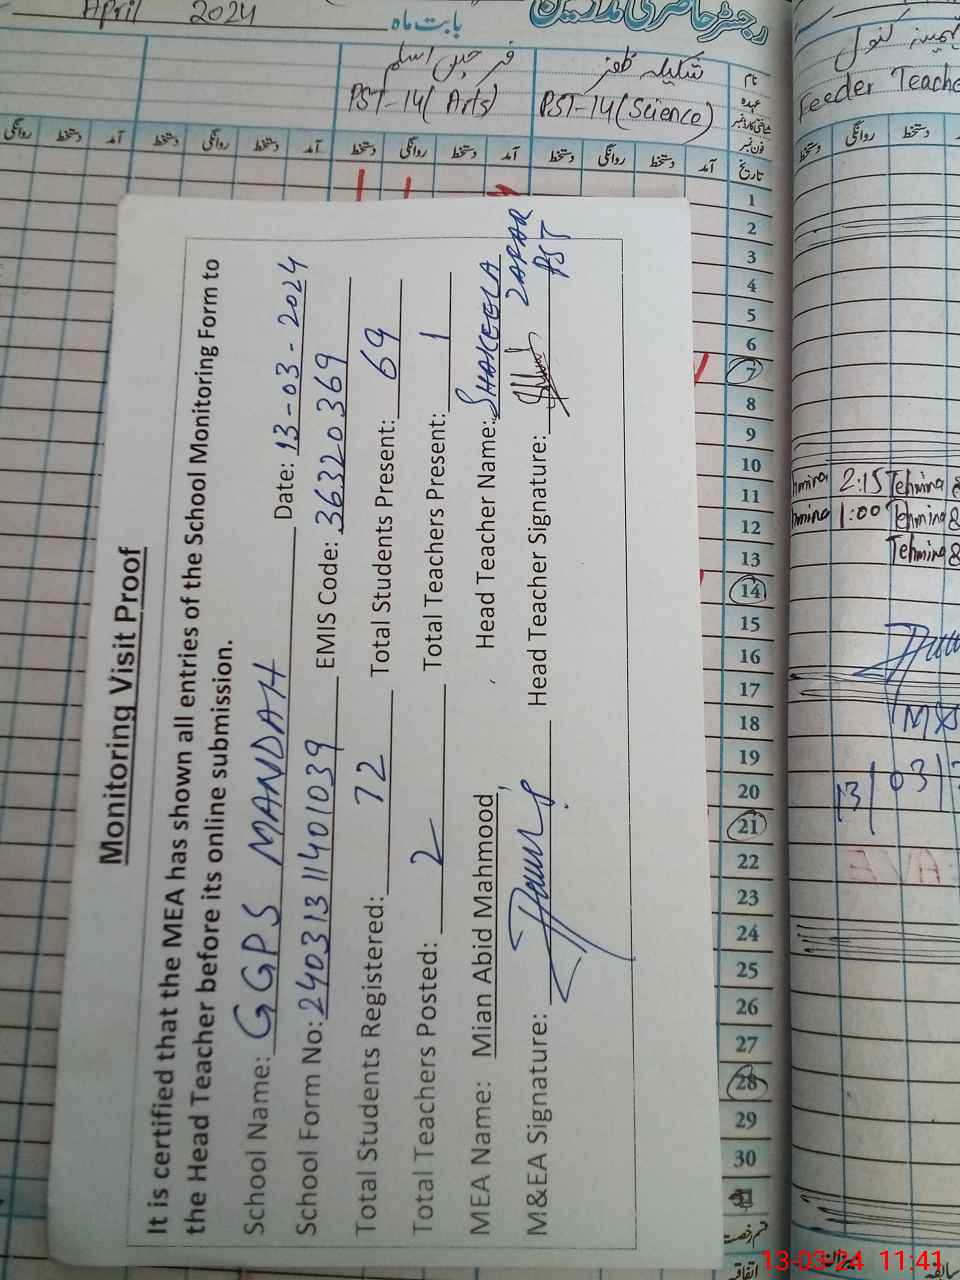 April 2024
بابت ماہ
رجسٹر حاضری مدرسین
شکیلہ ظفر
PST-14(Arts)
PST-14(Science)
Feeder Teache
نام
عہدہ
فون نمبر
تاریخ
آمد
دستخط
روانگی
دستخط
آمد
دستخط
روانگی
دستخط
آمد
دستخط
روانگی
1
2
3
4
5
6
7
8
9
10
11
12
13
14
15
16
17
18
19
20
21
22
23
24
25
26
27
28
29
30
اتفاقیہ
Monitoring Visit Proof
It is certified that the MEA has shown all entries of the School Monitoring Form to
the Head Teacher before its online submission.
School Name: GGPS MANDAH Date: 13-03-2024
School Form No: 2403131140 1039 EMIS Code: 36320369
Total Students Registered: 72 Total Students Present: 69
Total Teachers Posted: 2 Total Teachers Present: 1
MEA Name: Mian Abid Mahmood Head Teacher Name: SHAKEELA ZAFAR
M&EA Signature: Head Teacher Signature: PST
2:15 Tehmina
1:00 Tehmina
Tehmina
13/03/
13-03-24 11:41